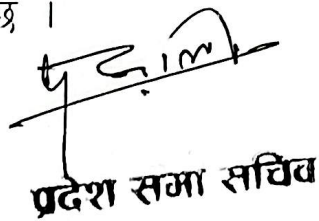 छ ।
प्रदेश सभा सचिव